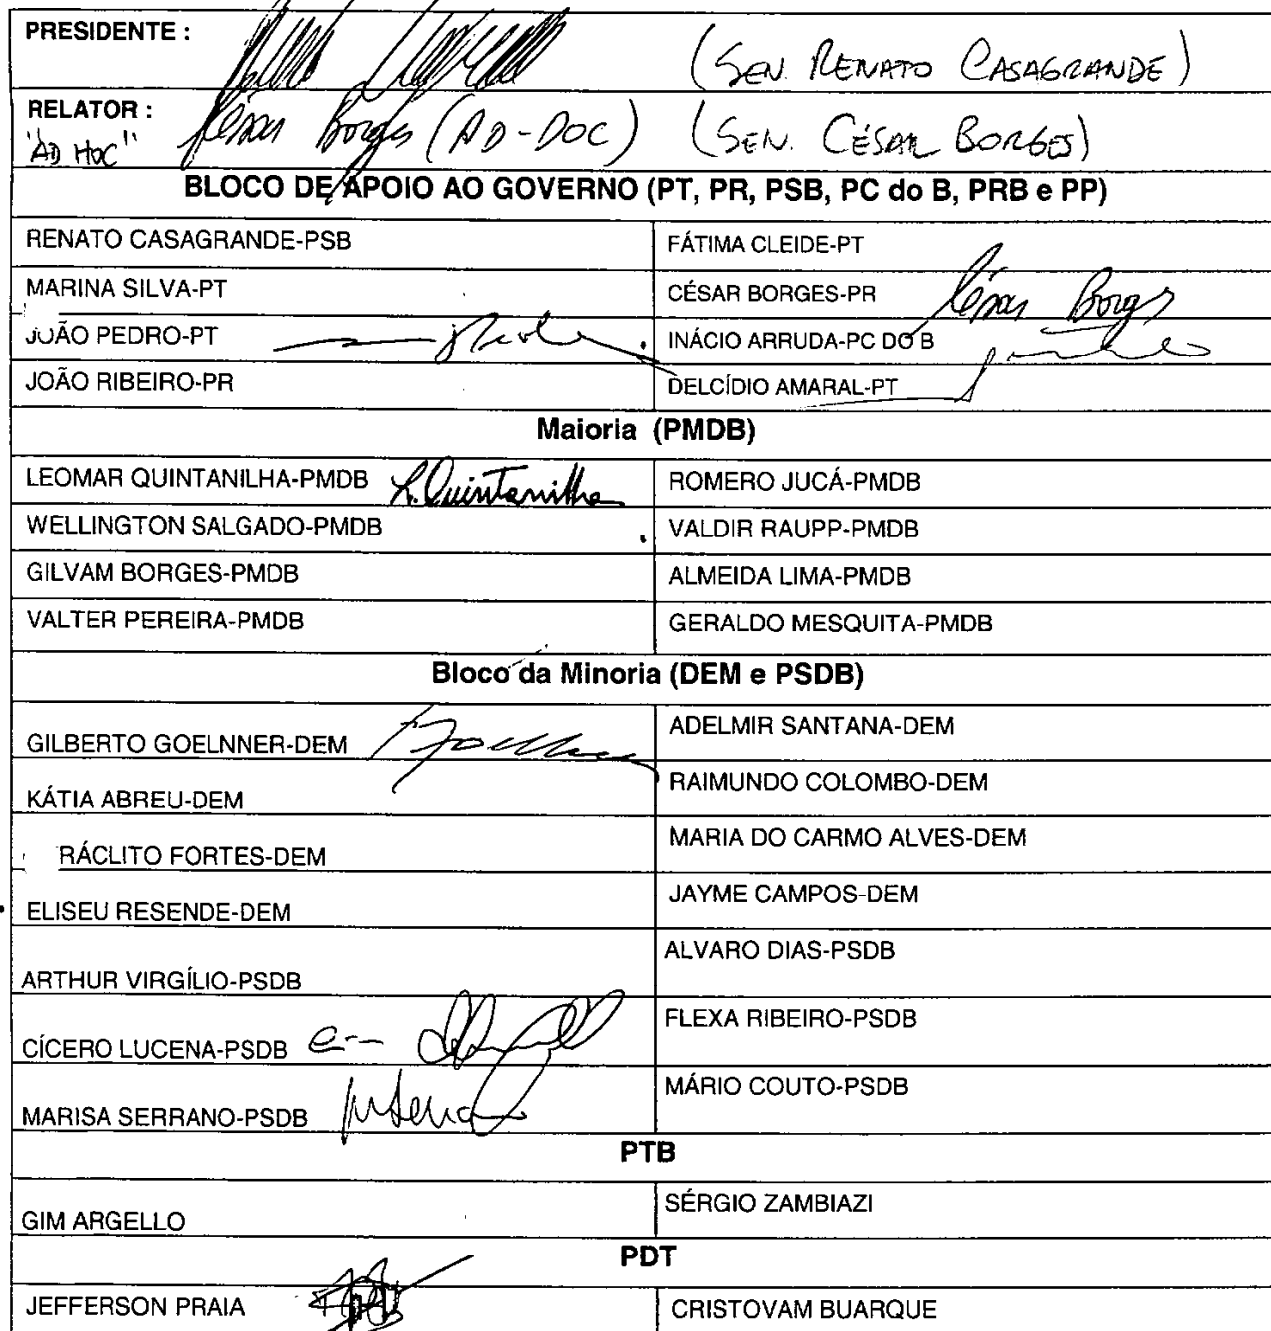 PRESIDENTE :
(SEN. RENATO CASAGRANDE)
RELATOR :
"AD HOC" César Borges (AD-DOC) (SEN. CÉSAR BORGES)
BLOCO DE APOIO AO GOVERNO (PT, PR, PSB, PC do B, PRB e PP)
RENATO CASAGRANDE-PSB FÁTIMA CLEIDE-PT
MARINA SILVA-PT CÉSAR BORGES-PR César Borges
JOÃO PEDRO-PT INÁCIO ARRUDA-PC DO B
JOÃO RIBEIRO-PR DELCÍDIO AMARAL-PT
Maioria (PMDB)
LEOMAR QUINTANILHA-PMDB L. Quintanilha ROMERO JUCÁ-PMDB
WELLINGTON SALGADO-PMDB VALDIR RAUPP-PMDB
GILVAM BORGES-PMDB ALMEIDA LIMA-PMDB
VALTER PEREIRA-PMDB GERALDO MESQUITA-PMDB
Bloco da Minoria (DEM e PSDB)
GILBERTO GOELNNER-DEM ADELMIR SANTANA-DEM
KÁTIA ABREU-DEM RAIMUNDO COLOMBO-DEM
RÁCLITO FORTES-DEM MARIA DO CARMO ALVES-DEM
ELISEU RESENDE-DEM JAYME CAMPOS-DEM
ARTHUR VIRGÍLIO-PSDB ALVARO DIAS-PSDB
CÍCERO LUCENA-PSDB FLEXA RIBEIRO-PSDB
MARISA SERRANO-PSDB MÁRIO COUTO-PSDB
PTB
GIM ARGELLO SÉRGIO ZAMBIAZI
PDT
JEFFERSON PRAIA CRISTOVAM BUARQUE